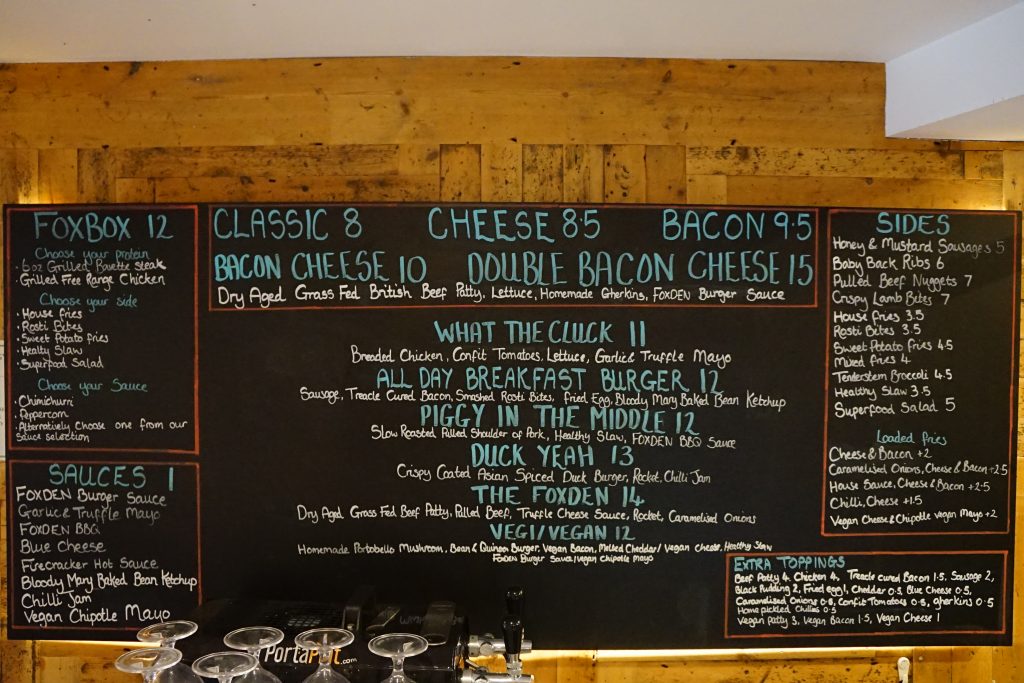 FOXBOX 12
Choose your protein
· 6oz Grilled Bavette steak
· Grilled Free Range Chicken
Choose your side
· House fries
· Rosti Bites
· Sweet Potato fries
· Healthy Slaw
· Superfood Salad
Choose your Sauce
· Chimichurri
· Peppercorn
· Alternatively Choose one from our
Sauce selection
SAUCES 1
FOXDEN Burger Sauce
Garlic & Truffle Mayo
FOXDEN BBQ
Blue Cheese
Firecracker Hot Sauce
Bloody Mary Baked Bean Ketchup
Chilli Jam
Vegan Chipotle Mayo
CLASSIC 8 CHEESE 8.5 BACON 9.5
BACON CHEESE 10 DOUBLE BACON CHEESE 15
Dry Aged Grass Fed British Beef Patty, Lettuce, Homemade Gherkins, FOXDEN Burger Sauce
WHAT THE CLUCK 11
Breaded Chicken, Confit Tomatoes, Lettuce, Garlic & Truffle Mayo
ALL DAY BREAKFAST BURGER 12
Sausage, Treacle Cured Bacon, Smashed Rosti Bites, Fried Egg, Bloody Mary Baked Bean Ketchup
PIGGY IN THE MIDDLE 12
Slow Roasted Pulled Shoulder of Pork, Healthy Slaw, FOXDEN BBQ Sauce
DUCK YEAH 13
Crispy Coated Asian Spiced Duck Burger, Rocket, Chilli Jam
THE FOXDEN 14
Dry Aged Grass Fed Beef Patty, Pulled Beef, Truffle Cheese Sauce, Rocket, Caramelised Onions
VEGI/VEGAN 12
Homemade Portobello Mushroom, Bean & Quinoa Burger, Vegan Bacon, Melted Cheddar/Vegan Cheese, Healthy Slaw
FOXDEN Burger Sauce/Vegan Chipotle Mayo
SIDES
Honey & Mustard Sausages 5
Baby Back Ribs 6
Pulled Beef Nuggets 7
Crispy Lamb Bites 7
House fries 3.5
Rosti Bites 3.5
Sweet Potato fries 4.5
Mixed fries 4
Tenderstem Broccoli 4.5
Healthy Slaw 3.5
Superfood Salad 5
Loaded fries
Cheese & Bacon +2
Caramelised Onions, Cheese & Bacon +2.5
House Sauce, Cheese & Bacon +2.5
Chilli, Cheese +1.5
Vegan Cheese & Chipotle Vegan Mayo +2
EXTRA TOPPINGS
Beef Patty 4, Chicken 4, Treacle cured Bacon 1.5, Sausage 2,
Black Pudding 2, Fried egg 1, Cheddar 0.5, Blue Cheese 0.5,
Caramelised Onions 0.8, Confit Tomatoes 0.8, gherkins 0.5
Home pickled Chillis 0.5
Vegan patty 3, Vegan Bacon 1.5, Vegan Cheese 1
PortaPint.com